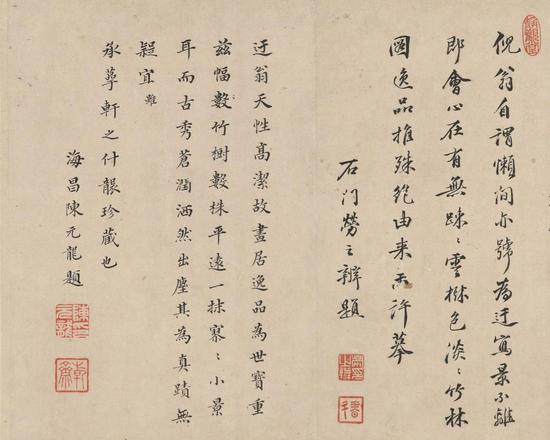 倪翁自謂懶洵亦號為迂寫景不離
即會心在有無踈〻雲樹色淡〻竹林
圖逸品推殊絕由来未許摹
石門勞之辨題
迂翁天性高潔故畫居逸品為世寶重
茲幅數竹樹數株平遠一抹寥〻小景
耳而古秀蒼潤洒然出塵其為真蹟無
疑宜
承蓴軒之什襲珍藏也
海昌陳元龍題